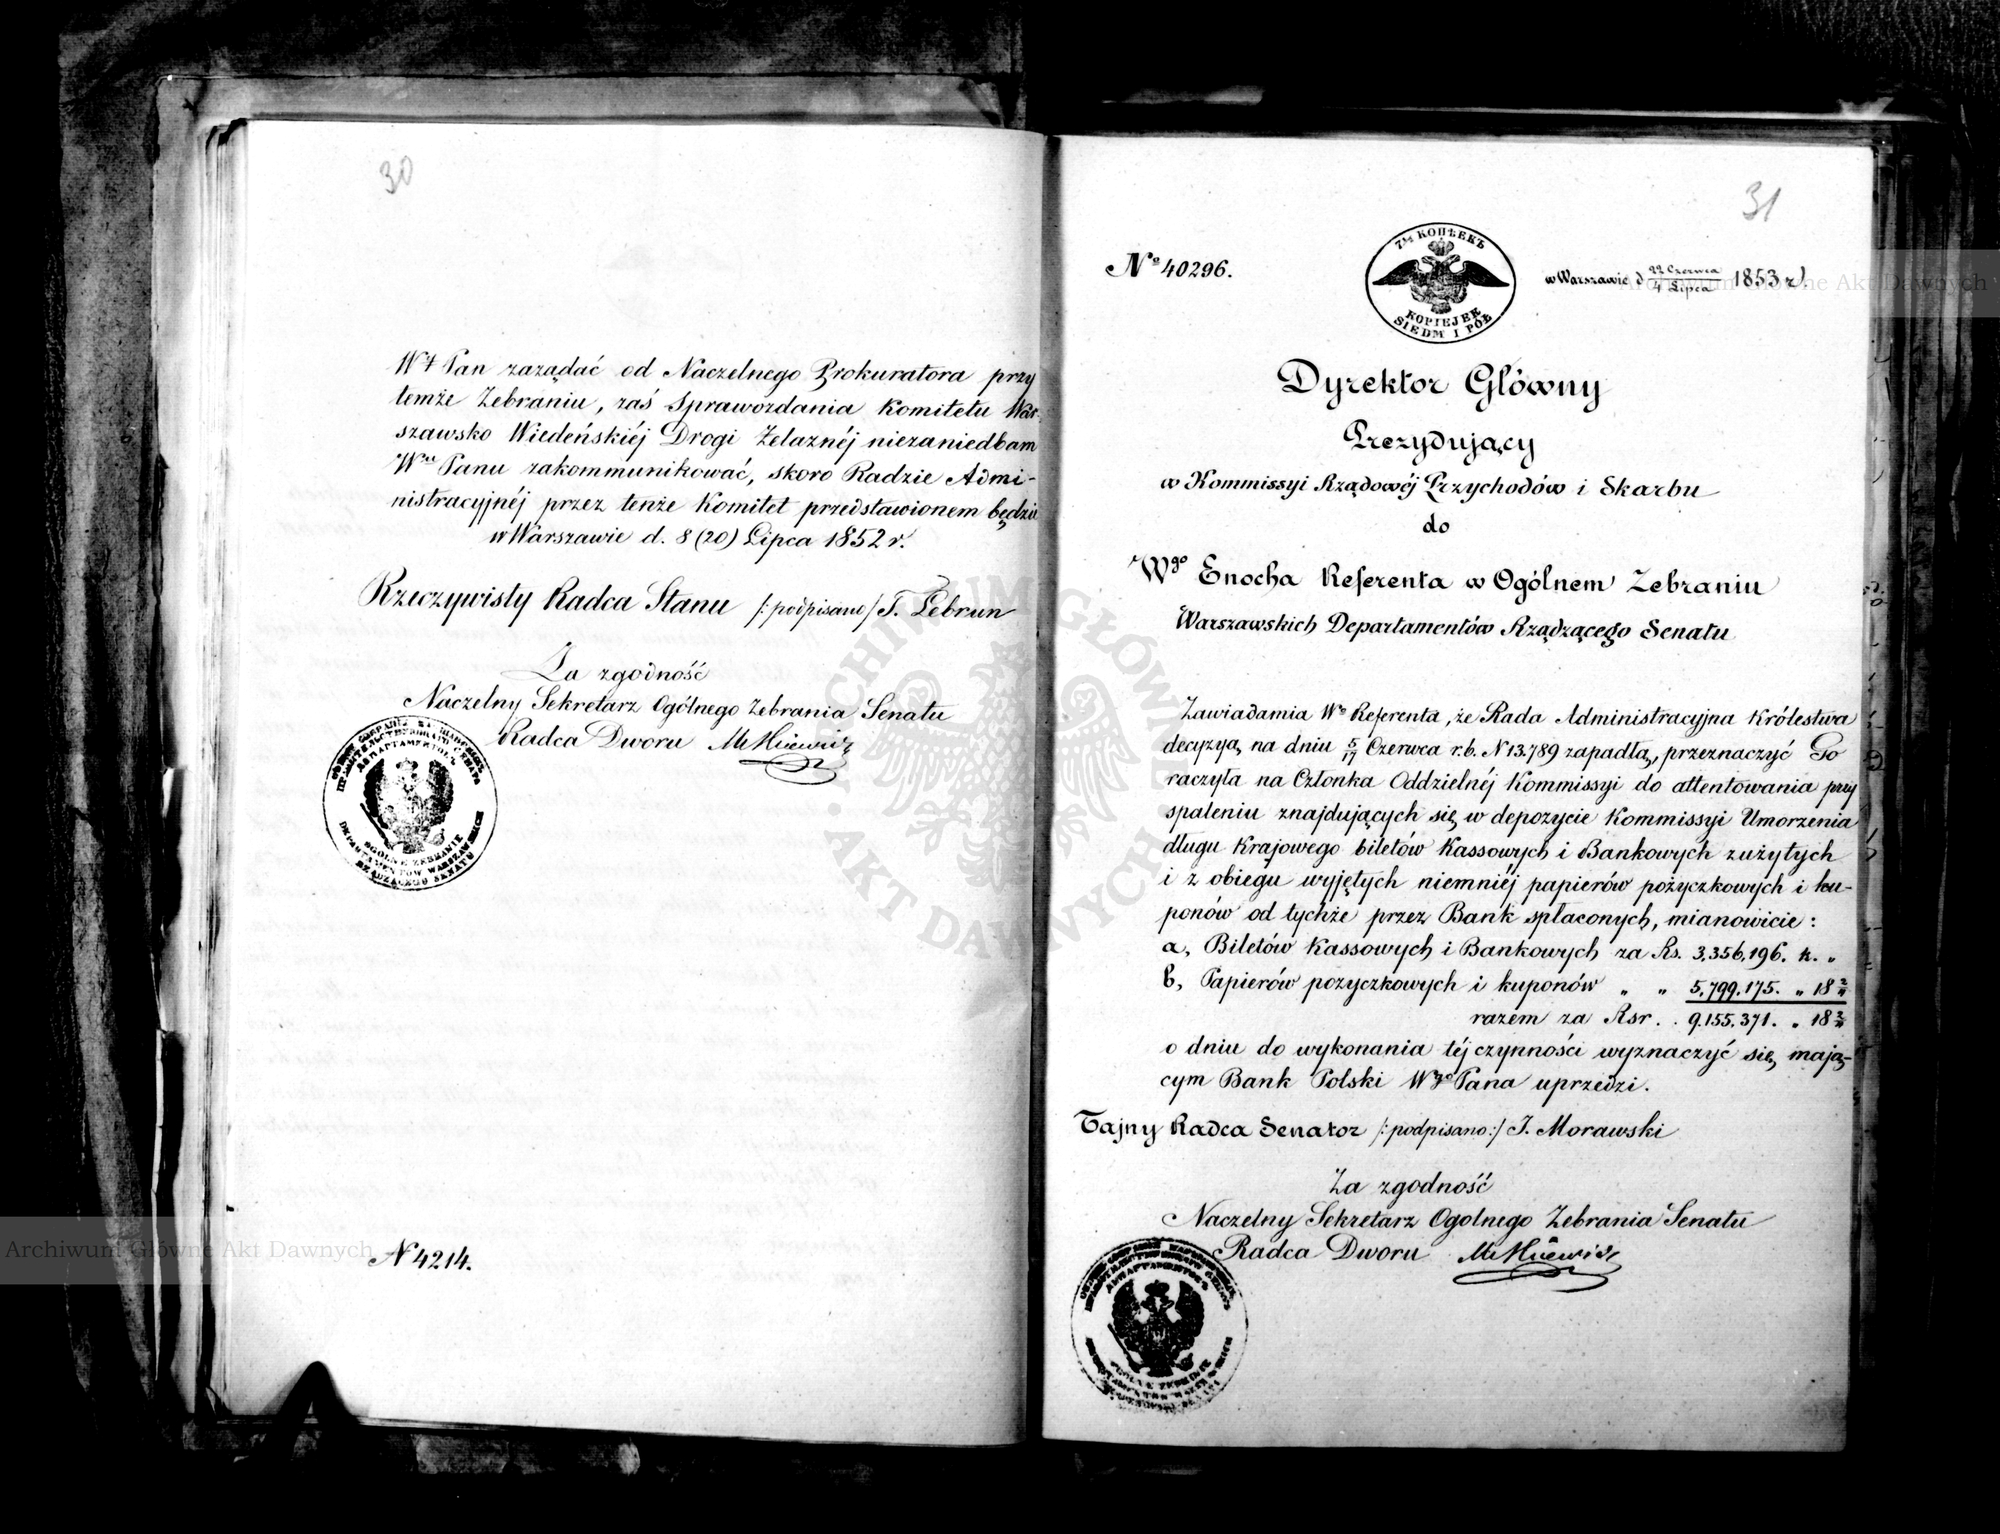 30
W<sup>y</sup> Pan zażądać od Naczelnego Prokuratora przy
temże Zebraniu, zaś Sprawozdania Komitetu War-
szawsko Wiedeńskiéj Drogi Żelaznéj niezaniedbam
W<sup>mu</sup> Panu zakommunikować, skoro Radzie Admi-
nistracyjnéj przez tenże Komitet przedstawionem będzie
w Warszawie d. 8 (20) Lipca 1852 r.
Rzeczywisty Radca Stanu /:podpisano/ T. Lebrun
Za zgodność
Naczelny Sekretarz Ogólnego Zebrania Senatu
Radca Dworu
OGÓLNE ZEBRANIE
DEPARTAMENTÓW WARSZAWSKICH
RZĄDZĄCEGO SENATU
N 4214.
31
Nº 40296.
7½ КОПѢЕКЪ
KOPIEJEK
SIEDM I PÓŁ
w Warszawie d 22 Czerwca / 4 Lipca 1853 r.
Dyrektor Główny
Prezydujący
w Kommissyi Rządowéj Przychodów i Skarbu
do
W<sup>go</sup> Enocha Referenta w Ogólnem Zebraniu
Warszawskich Departamentów Rządzącego Senatu
Zawiadamia W<sup>o</sup> Referenta, że Rada Administracyjna Królestwa
decyzyą na dniu 5/17 Czerwca r.b. N 13.789 zapadłą, przeznaczyć Go
raczyła na Członka Oddzielnéj Kommissyi do attentowania przy
spaleniu znajdujących się w depozycie Kommissyi Umorzenia
długu Krajowego biletów Kassowych i Bankowych zużytych
i z obiegu wyjętych niemniéj papierów pożyczkowych i ku-
ponów od tychże przez Bank spłaconych, mianowicie:
a, Biletów Kassowych i Bankowych za Rs. 3,356,196. k. „
b, Papierów pożyczkowych i kuponów „ „ 5,799,175. „ 18
razem za Rsr. . 9.155.371. „ 18
o dniu do wykonania téj czynności wyznaczyć się mają-
cym Bank Polski W<sup>go</sup> Pana uprzedzi.
Tajny Radca Senator /:podpisano:/ J. Morawski
Za zgodność
Naczelny Sekretarz Ogolnego Zebrania Senatu
Radca Dworu
Archiwum Główne Akt Dawnych
Archiwum Główne Akt Dawnych
ARCHIWUM GŁÓWNE
AKT DAWNYCH